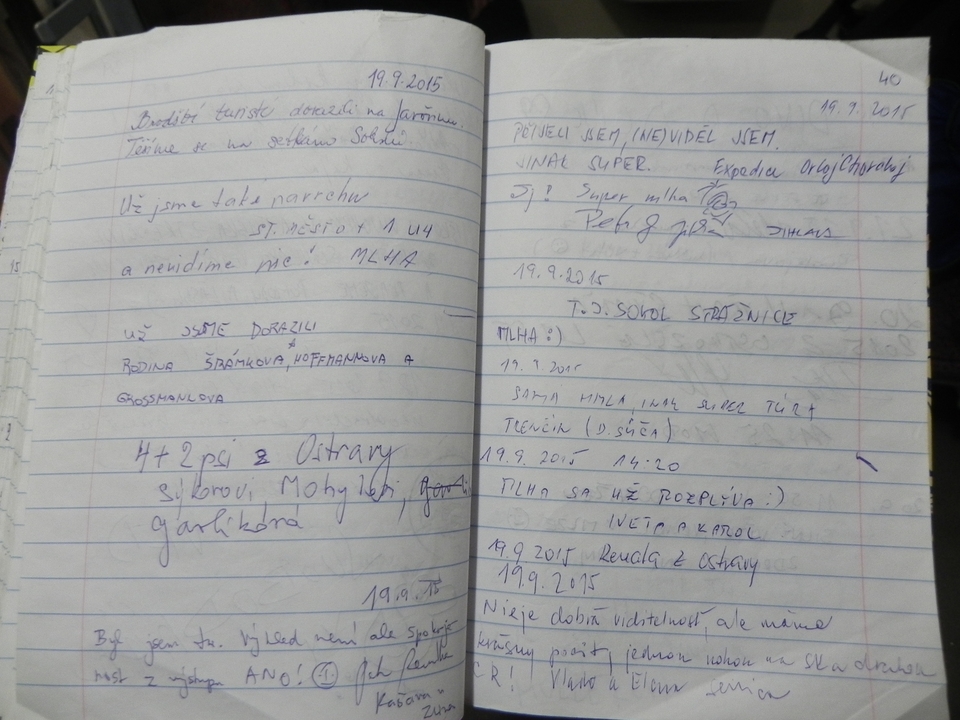 19.9.2015
turisté dorazili na Javořinu.
Těšíme se na setkání Sokolů.
Už jsme také navrchu
ST. MĚSTO + 1 UH
a nevidíme nic! MLHA
UŽ JSME DORAZILI
RODINA ŠRÁMKOVA, HOFFMANNOVA A
GROSSMANNOVA
4+2 psi z Ostravy
Sýkorovi
19.9.15
Byl jsem tu. Výhled není ale spokoje
nost z výstupu ANO! 1.
40
19.9.2015
PŘIJEL JSEM, (NE)VIDĚL JSEM.
JINAK SUPER. Expedice
Jj! Super mlha
Petr
19.9.2015
T.J. SOKOL STRÁŽNICE
MLHA :)
19.9.2015
SAMÁ HMLA, INAK SUPER TÚRA
TRENČÍN (D. SÚČA)
19.9.2015 14:20
MLHA SA UŽ ROZPLÝVA :)
IVETA A KAROL
19.9 2015 Renata z Ostravy
19.9.2015
Nieje dobrá viditelnosť, ale máme
krásny pocit, jednou nohou na SK a druhou
ČR! Vlado a Elena